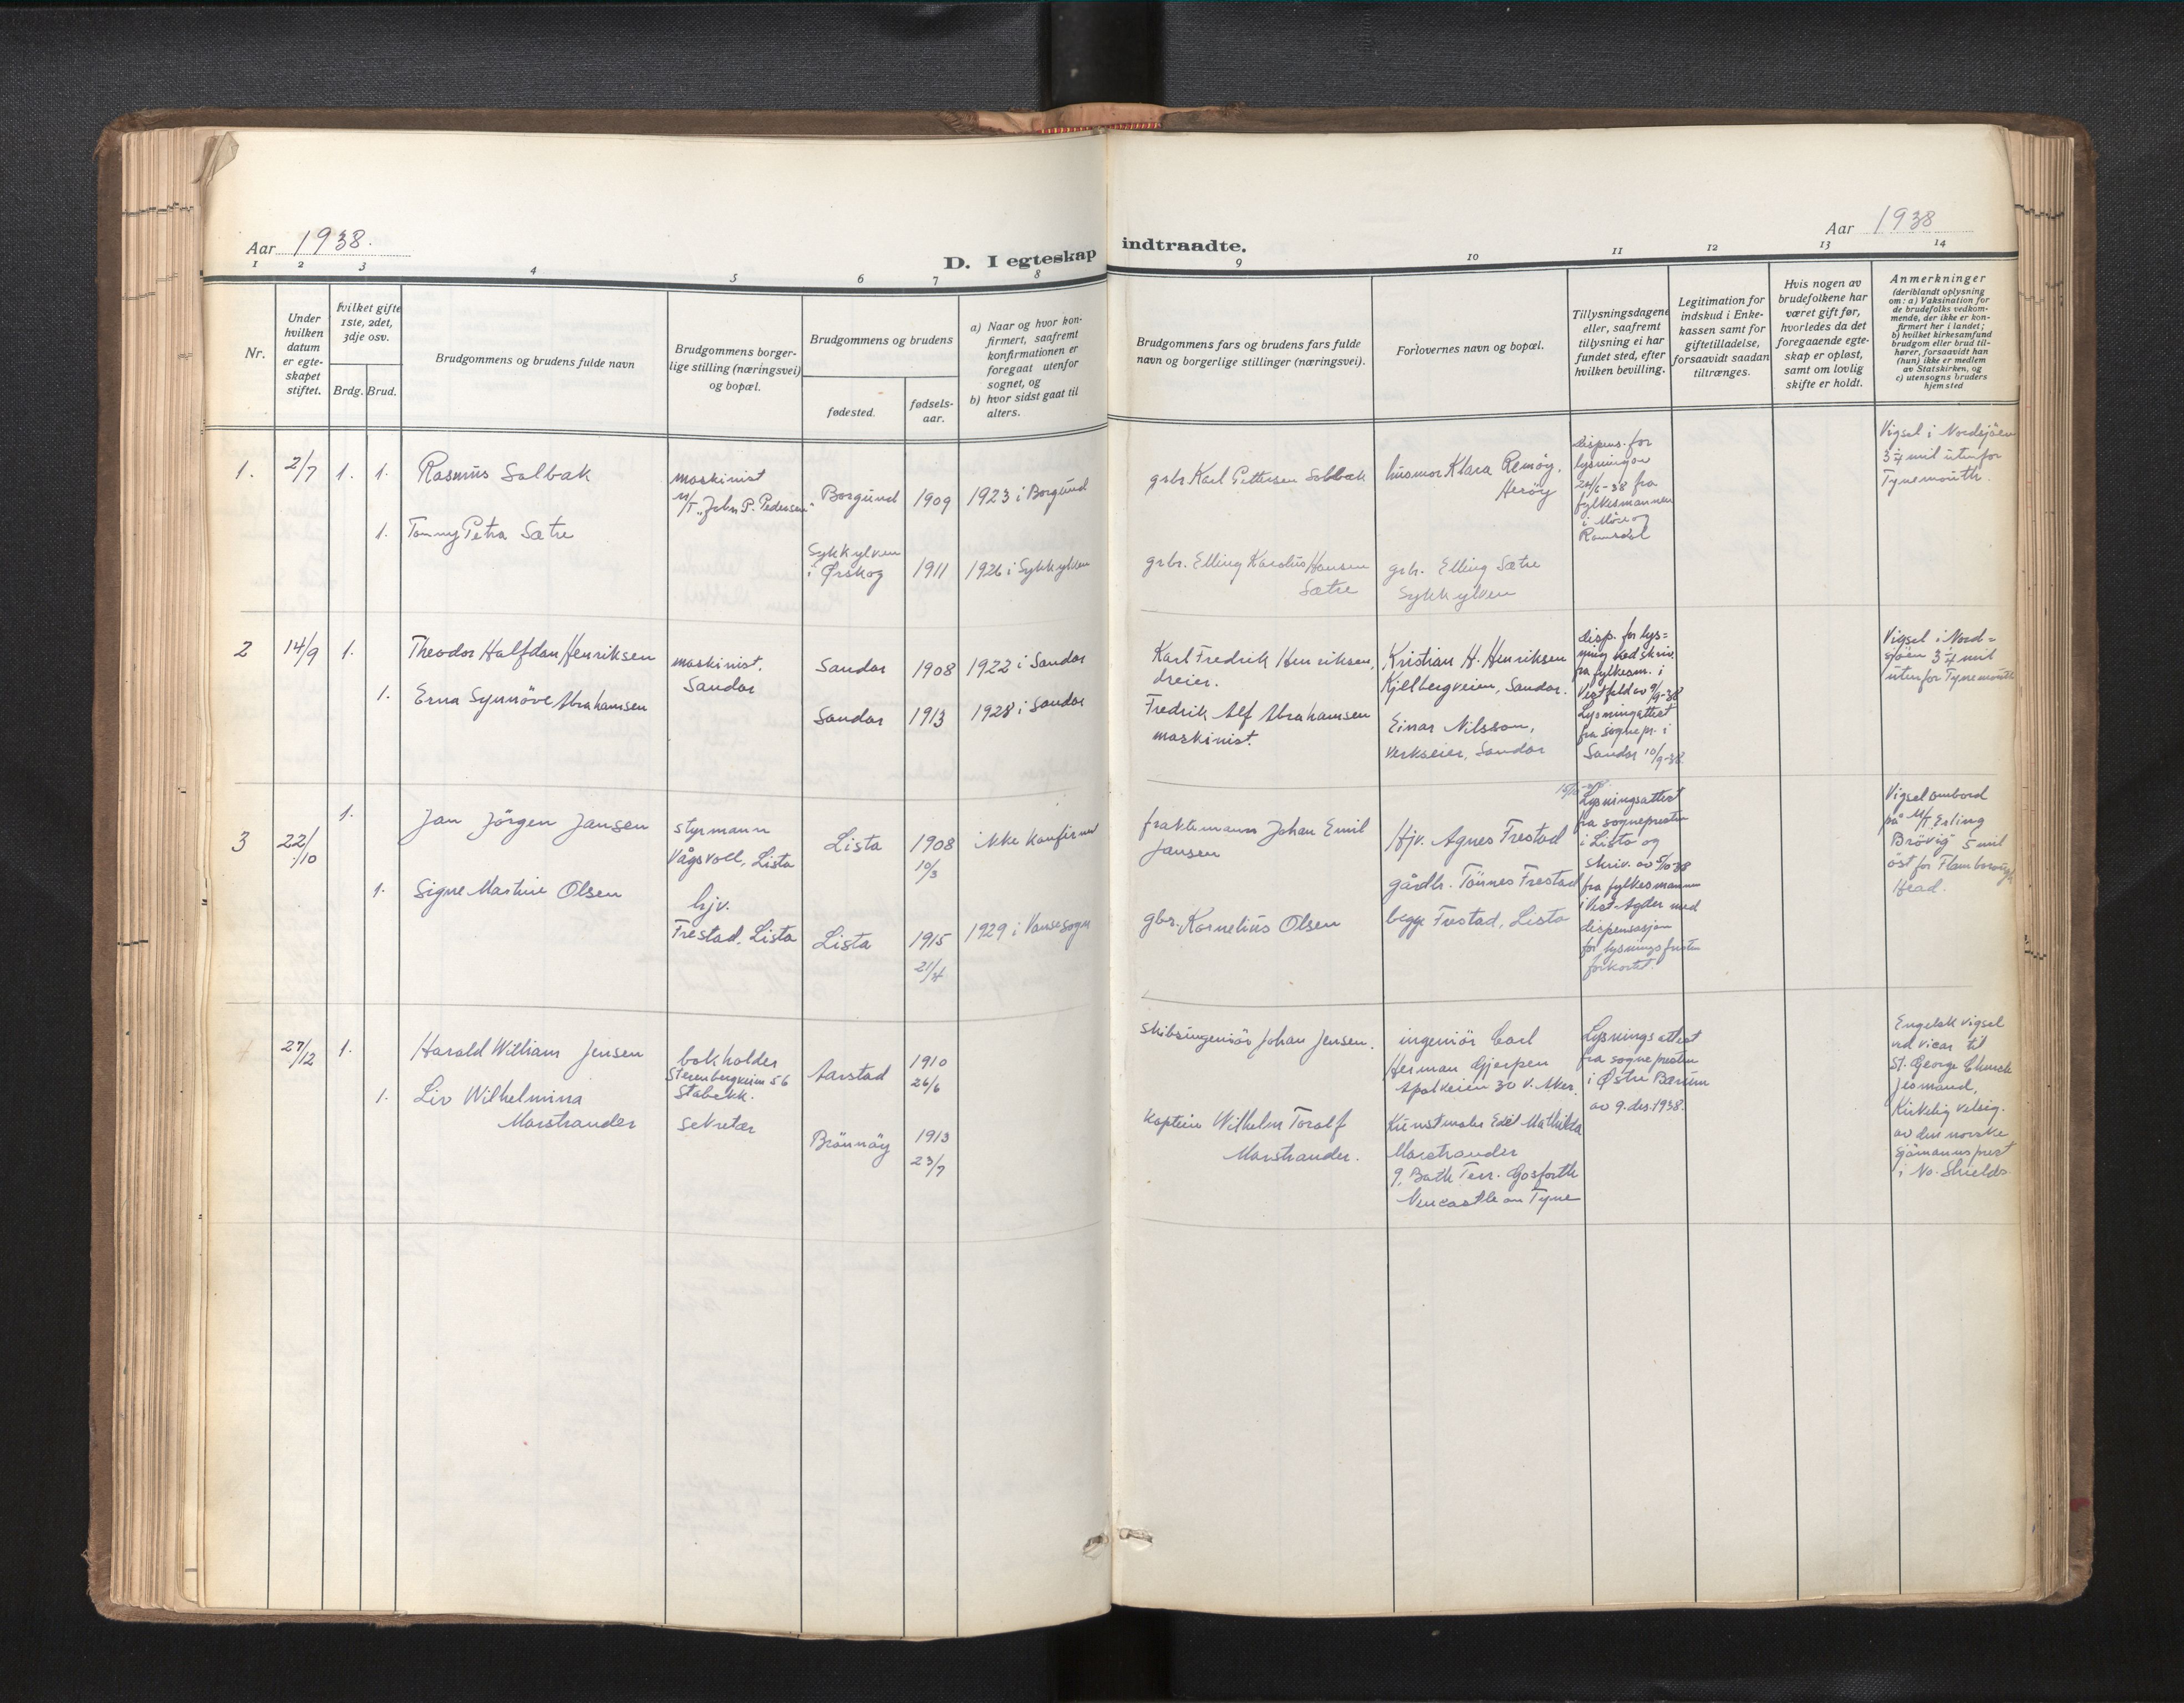 Aar 1938.
D. I egteskap
indtraadte.
Aar 1938
1 2 3 4 5 6 7 8
9 10 11 12 13 14
Nr.
Under
hvilken
datum
er egte-
skapet
stiftet.
Hvilket gifte
1ste, 2det,
3dje osv.
Brdg. Brud.
Brudgommens og brudens fulde navn
Brudgommens borger-
lige stilling (næringsvei)
og bopæl.
Brudgommens og brudens
fødested.
fødsels-
aar.
a) Naar og hvor kon-
firmert, saafremt
konfirmationen er
foregaat utenfor
sognet, og
b) hvor sidst gaat til
alters.
Brudgommens fars og brudens fars fulde
navn og borgerlige stillinger (næringsvei).
Forlovernes navn og bopæl.
Tillysningsdagene
eller, saafremt
tillysning ei har
fundet sted, efter
hvilken bevilling.
Legitimation for
indskud i Enke-
kassen samt for
giftetilladelse,
forsaavidt saadan
tiltrænges.
Hvis nogen av
brudefolkene har
været gift før,
hvorledes da det
foregaaende egte-
skap er opløst,
samt om lovlig
skifte er holdt.
Anmerkninger
(deriblandt oplysning
om: a) Vaksination for
de brudefolks vedkom-
mende, der ikke er kon-
firmert her i landet;
b) hvilket kirkesamfund
brudgom eller brud til-
hører, forsaavidt han
(hun) ikke er medlem
av Statskirken, og
c) utensogns bruders
hjemsted
1. 2/7 1. 1. Rasmus Solbak
maskinist
M/T "John P. Pedersen"
Borgund 1909 1923 i Borgund
1. Tommy Petra Sætre
Sykkylven
i Ørskog 1911 1926 i Sykkylven
grbr Karl Pettersen Solbak
husmor Klara Remøy.
Herøy
dispens. for
lysning av
24/6-38 fra
fylkesmannen
i Møre og
Romsdal
Vigsel i Nordsjöen
3 1/4 mil utenfor
Tynemouth.
grbr. Elling Karolius Hansen
Sætre
grbr. Elling Sætre
Sykkylven
2 14/9 1. Theodor Halfdan Henriksen
maskinist.
Sandar
Sandar 1908 1922 i Sandar
1. Erna Synnöve Abrahamsen
Sandar 1913 1928 i Sandar
Karl Fredrik Henriksen,
dreier.
Kristian H. Henriksen
Kjellbergveien, Sandar.
Fredrik Alf Abrahamsen
maskinist.
Einar Nilsson,
verkseier, Sandar
disp. for lys=
ning ved skriv.
fra fylkesm. i
Vestfold av 9/9-38
Lysningattest
fra sognepr. i
Sandar 10/9-38.
Vigsel i Nord=
sjöen 3 1/4 mil
utenfor Tynemouth
3 22/10 1. Jan Jörgen Jansen
styrmann
Vågsvoll, Lista
Lista 1908
10/3
ikke konfirmert
1. Signe Martine Olsen
hjv.
Frestad, Lista
Lista 1915
21/4
1929 i Vanse sogn
fraktemann Johan Emil
Jansen
Hjv. Agnes Frestad
gårdbr. Tönnes Frestad
begge Frestad, Lista
gbr. Kornelius Olsen
Lysningsattest
fra sognepresten
i Lista og
skriv. av 5/10 38
fra fylkesmannen
i Vest-Agder med
dispensasjon
for lysningsfristen
forkortet.
Vigsel ombord
på M/T Erling
Brövig 5 mil
öst for Flamborough
Head.
4 27/12 1. Harald William Jensen
bokholder
Sterenbergveien 56
Stabekk.
Aarstad 1910
26/6
1. Liv Wilhelmina
Marstrander
sekretær
Brönnöy 1913
23/7
Skibsingeniör Johan Jensen.
ingeniör Carl
Herman Gjerpen
Apalveien 30 V. Aker.
Kaptein Wilhelm Toralf
Marstrander.
Kunstmaler Edel Mathilda
Marstrander
9, Bath Terr. Gosforth
Newcastle on Tyne
Lysningsattest
fra sognepresten
i Østre Bærum
av 9. des. 1938.
Engelsk vigsel
ved vicar til
St. George Church
Jesmond.
Kirkelig velsig.
av den norske
sjömannsprest
i No. Shields